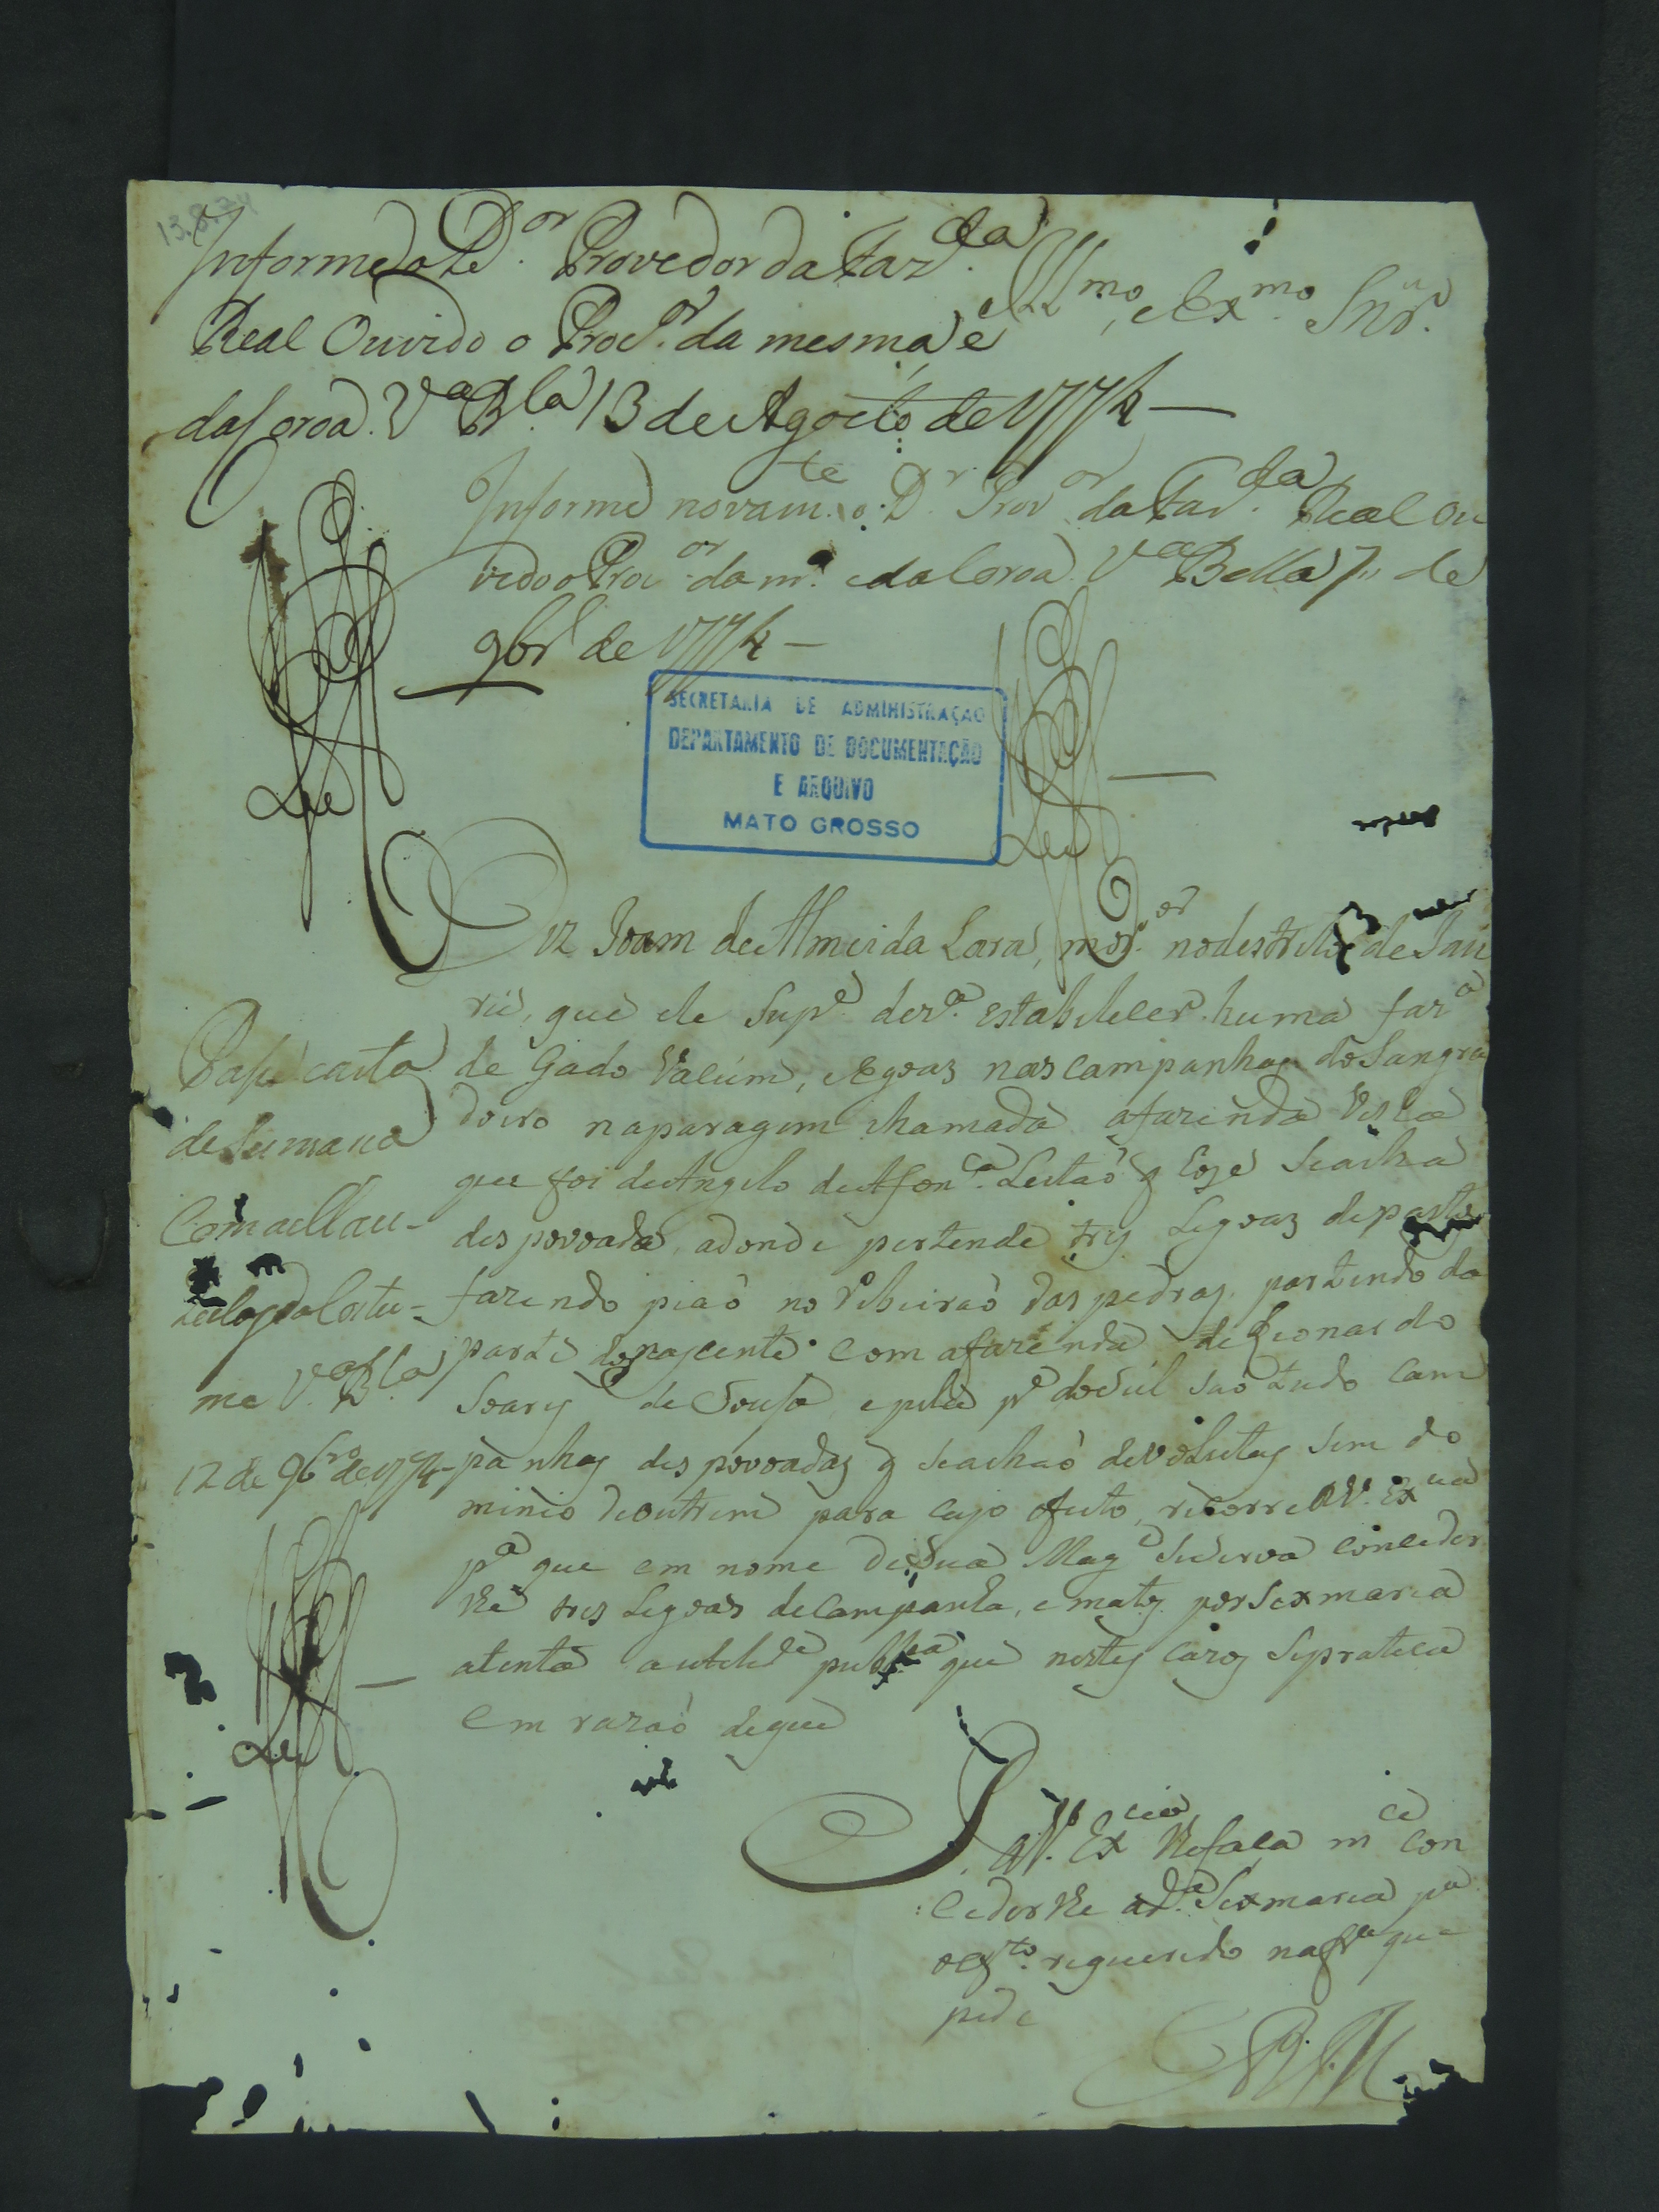 13.8.74
Informe o D.or Provedor da Faz.da
Real Ouvido o Proc.or da mesma, e
da Coroa. V.a B.la 13 de Agosto de 1774 —
Ill.mo, e Ex.mo Snr.
Informe novam.te o D.r Prov.or da Faz.da Real Ou
vido o Proc.or da m.a e da Coroa. V.a Bella 7 de
9br.o de 1774 —
SECRETARIA DE ADMINISTRAÇÃO
DEPARTAMENTO DE DOCUMENTAÇÃO
E ARQUIVO
MATO GROSSO
Diz Joam de Almeida Lara, mor.or no destrito de Jau
rú, que ele Sup.e dez.a estabelecer huma faz.a
de Gado Vacum, e Egoas nas campanhas do Sangra
doiro na paragem chamada a fazenda Velha
que foi de Angelo de Afon.ca Leitaõ q Hoje se acha
despovoada, adonde pertende tres Legoas de
fazendo piaõ no Ribeiraõ das pedras, partindo da
parte do nascente com a fazenda de Leonardo
Soares de Sousa, e pela p.e do Sul saõ tudo cam
panhas despovoadas q se achaõ devolutas sem do
minio de outrem para cujo efeito, recorre a V. Ex.cia
p.a que em nome de Sua Mag.e se sirva conceder
lhe tres Legoas de Campanha, e matos por Sexmaria
atenta a utelid.e publica que nestes cazos se pratica
em razaõ de que
Passe carta
de Sesmaria
Com as
do Costu-
me V.a B.la
12 de 9br.o de 1774 —
P. a V. Ex.cia lhe faça m.ce con
ceder lhe a d.a Sexmaria p.a
o ef.to requerido na fr.a que
pede
E. R. M.